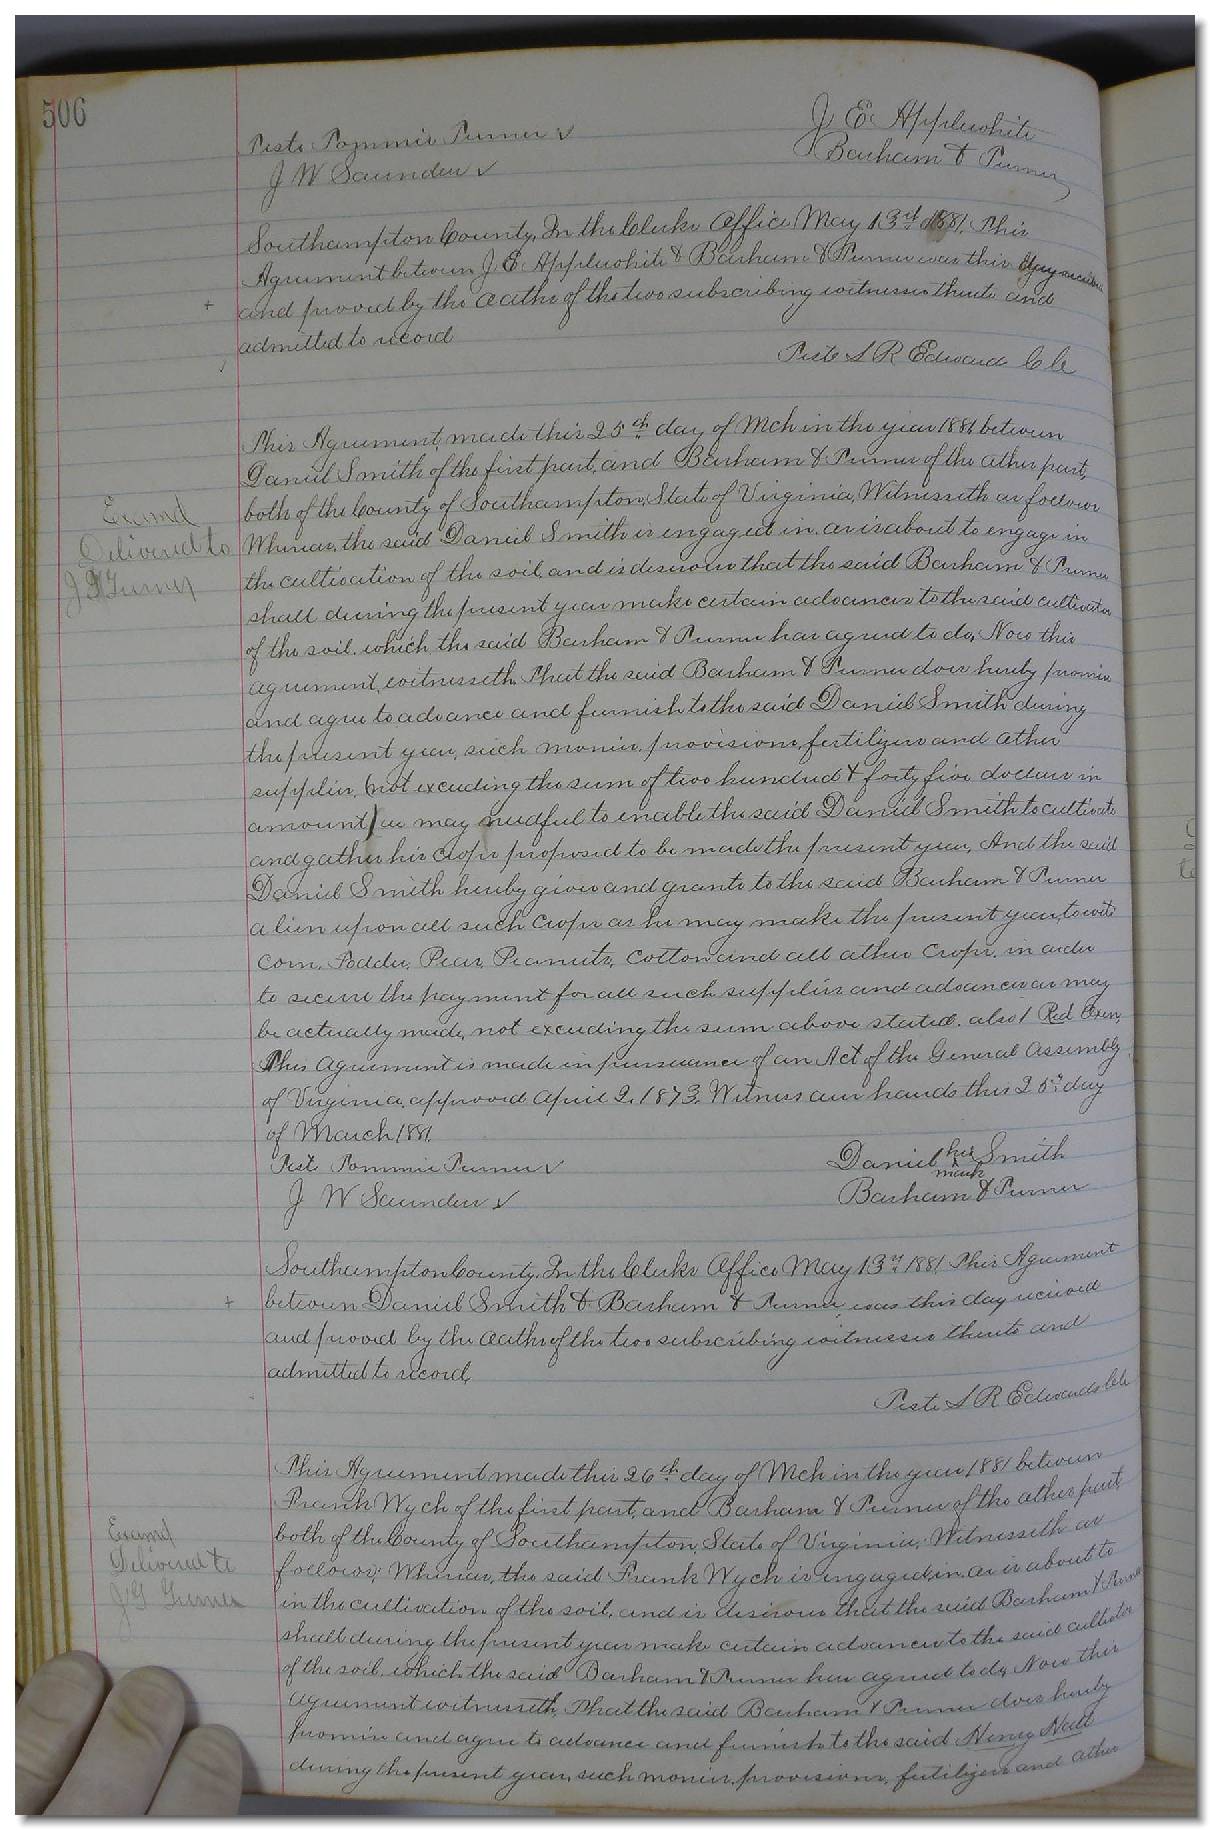 506
J E Applewhite
Teste Pommie Turner ✓
Barham & Turner
J W Saunders ✓
Southampton County, In the Clerks Office May 13rd 1881, This
Agreement between J E Applewhite & Barham & Turner was this day received
and proved by the oaths of the two subscribing witnesses thereto and
admitted to record
Teste S R Edwards Clk
This Agreement, made this 25th day of Mch in the year 1881 between
Daniel Smith of the first part, and Barham & Turner of the other part,
both of the County of Southampton, State of Virginia, Witnesseth as follows
Whereas, the said Daniel Smith is engaged in, or is about to engage in
the cultivation of the soil, and is desirous that the said Barham & Turner
shall during the present year make certain advances to the said cultivator
of the soil, which the said Barham & Turner has agreed to do, Now this
agreement, witnesseth, That the said Barham & Turner does hereby promise
and agree to advance and furnish to the said Daniel Smith during
the present year, such monies, provisions, fertilizers and other
supplies, (not exceeding the sum of two hundred & forty five dollars in
amount) as may needful to enable the said Daniel Smith to cultivate
and gather his crops proposed to be made the present year, And the said
Daniel Smith hereby gives and grants to the said Barham & Turner
a lien upon all such crops as he may make the present year, to wit:
Corn, Fodder, Peas, Peanuts, Cotton and all other crops, in order
to secure the payment for all such supplies and advances as may
be actually made, not exceeding the sum above stated. also 1 Red Oxen,
This agreement is made in pursuance of an Act of the General Assembly
of Virginia, approved April 2, 1873. Witness our hands this 25th day
of March 1881,
Test Pommie Turner ✓
Daniel his Smith
x
mark
J W Saunders ✓
Barham & Turner
Southampton County, In the Clerks Office May 13rd 1881, This Agreement
between Daniel Smith & Barham & Turner, was this day received
and proved by the oaths of the two subscribing witnesses thereto and
admitted to record,
Teste S R Edwards Clk
This Agreement made this 26th day of Mch in the year 1881 between
Frank Wych of the first part, and Barham & Turner of the other part,
both of the County of Southampton, State of Virginia, Witnesseth as
follows; Whereas, the said Frank Wych is engaged, in, or is about to
in the cultivation of the soil, and is desirous that the said Barham & Turner
shall during the present year make certain advances to the said cultivator
of the soil, which the said Barham & Turner has agreed to do, Now this
agreement witnesseth, That the said Barham & Turner does hereby
promise and agree to advance and furnish to the said Henry Hall
during the present year, such monies, provisions, fertilizers and other
Examd
Delivered to
J G Turner
Examd
Delivered to
J G Turner